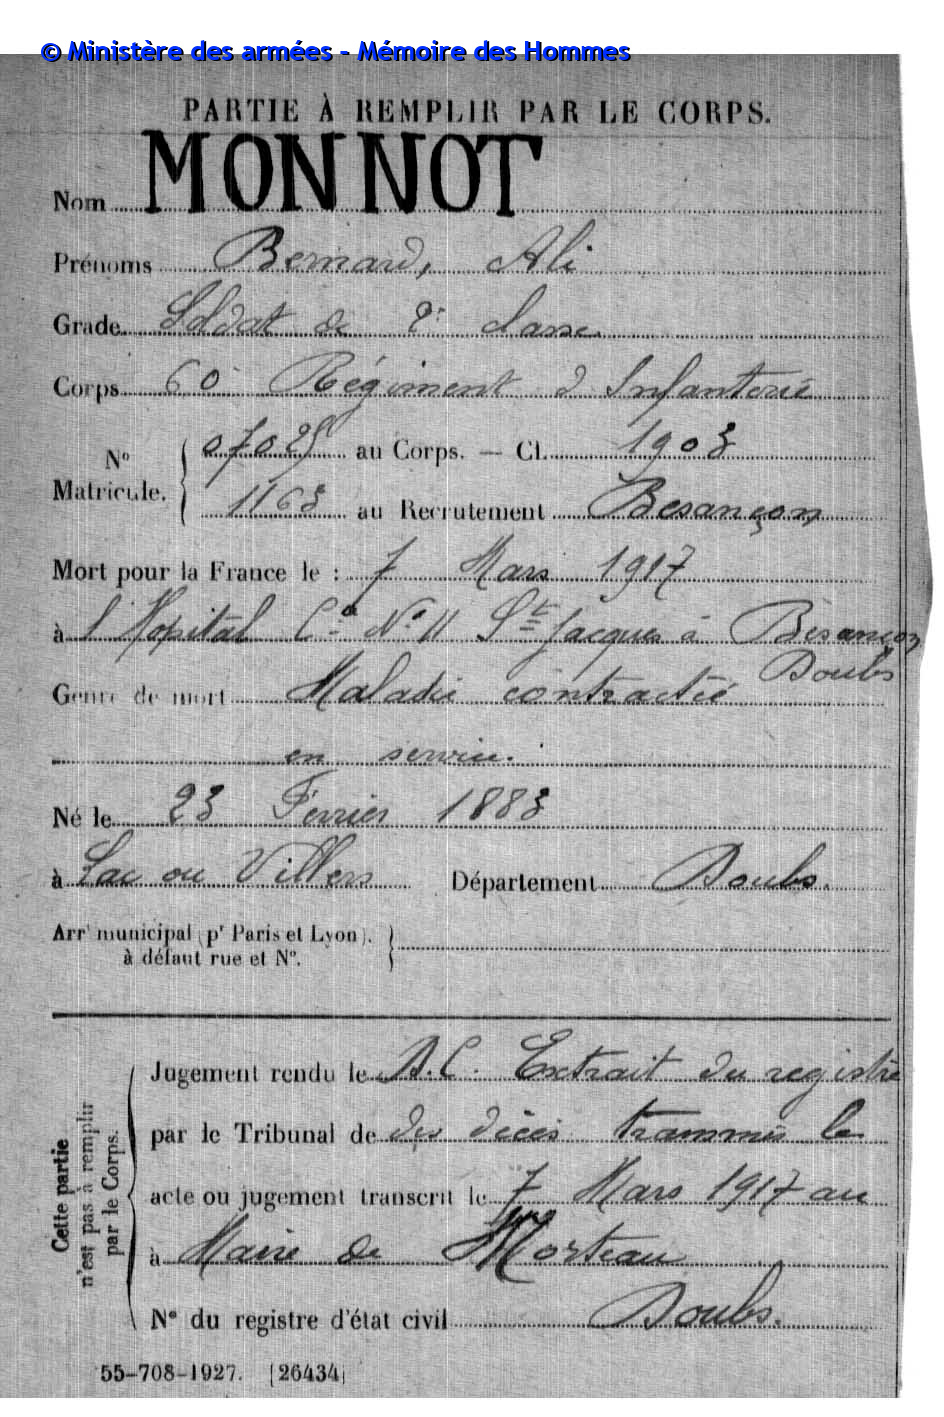 © Ministère des armées - Mémoire des Hommes
PARTIE À REMPLIR PAR LE CORPS.
Nom MONNOT
Prénoms Bernard, Ali
Grade Soldat de 2e classe
Corps 60 Régiment d Infanterie
N° Matricule. 07025 au Corps. — Cl. 1903
1163 au Recrutement Besançon
Mort pour la France le : 7 Mars 1917
à l'Hopital Cre N° 11 St Jacques à Besançon
Doubs
Genre de mort Maladie contractée
en service.
Né le 23 Fevrier 1883
à Lac ou Villers Département Doubs.
Arrt municipal (pr Paris et Lyon),
à défaut rue et N°.
Cette partie n'est pas à remplir par le Corps.
Jugement rendu le A.C. Extrait du registre
par le Tribunal de des décès transmis le
acte ou jugement transcrit le 7 Mars 1917 au
à Maire de Morteau
N° du registre d'état civil Doubs.
55-708-1927. [26434]